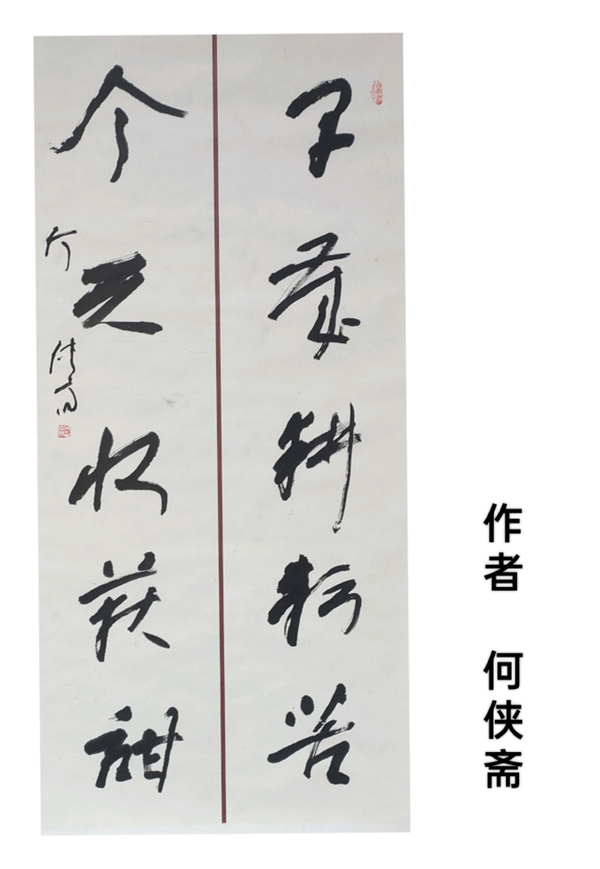 早歲耕耘苦
今之收获甜
何侠斋
作者 何侠斋